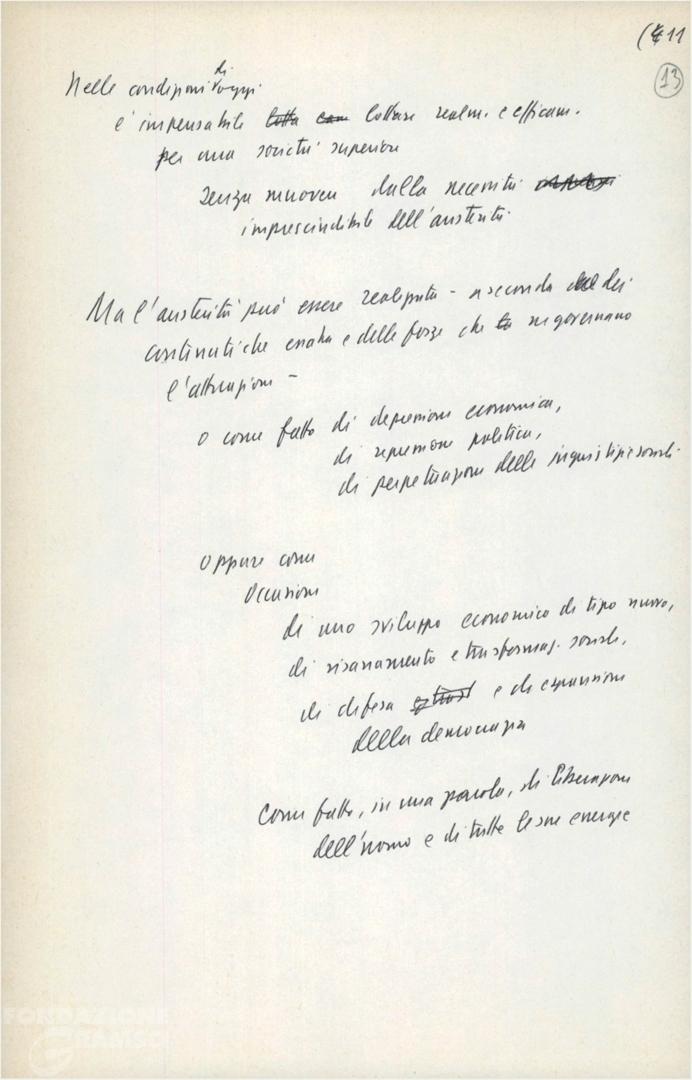 (4 11
13
Nelle condizioni di oggi
è impensabile lotta con lottare realm. e efficam.
per una società superiore
senza muovere dalla necessità
imprescindibile dell'austerità.
Ma l'austerità può essere realizzata - a seconda dei
contenuti che essa ha e delle forze che ne governano
l'attuazione -
o come fatto di depressione economica,
di repressione politica,
di perpetuazione delle ingiustizie sociali.
oppure come
occasione
di uno sviluppo economico di tipo nuovo,
di risanamento e trasformaz. sociale,
di difesa e di espansione
della democrazia
Come fatto, in una parola, di liberazione
dell'uomo e di tutte le sue energie
FONDAZIONE
GRAMSCI